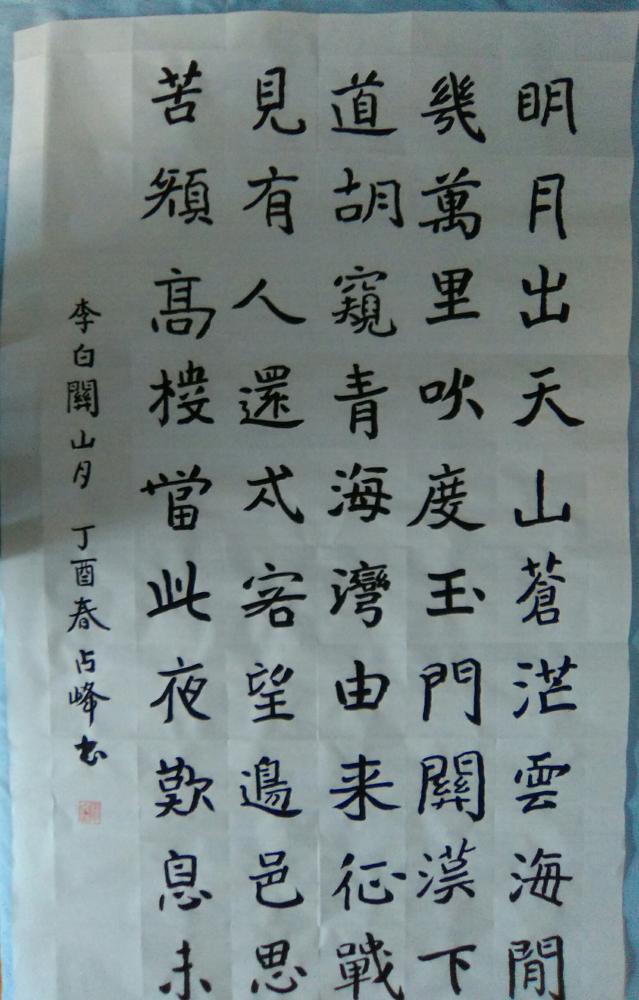 明月出天山蒼茫雲海閒
幾萬里吹度玉門關漢下
道胡窺青海灣由来征戰
見有人還戍客望邊邑思
苦顏高樓當此夜歎息未
李白關山月 丁酉春占峰书